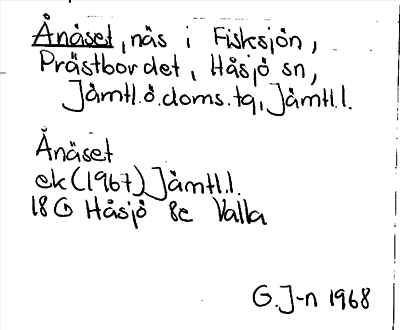 Ånäset, näs i Fisksjön,
Prästbordet, Håsjö sn,
Jämtl.ö.doms.tg, Jämtl.l.
Ånäset
ek (1967) Jämtl.l.
18 G Håsjö 8e Valla
G. J-n 1968